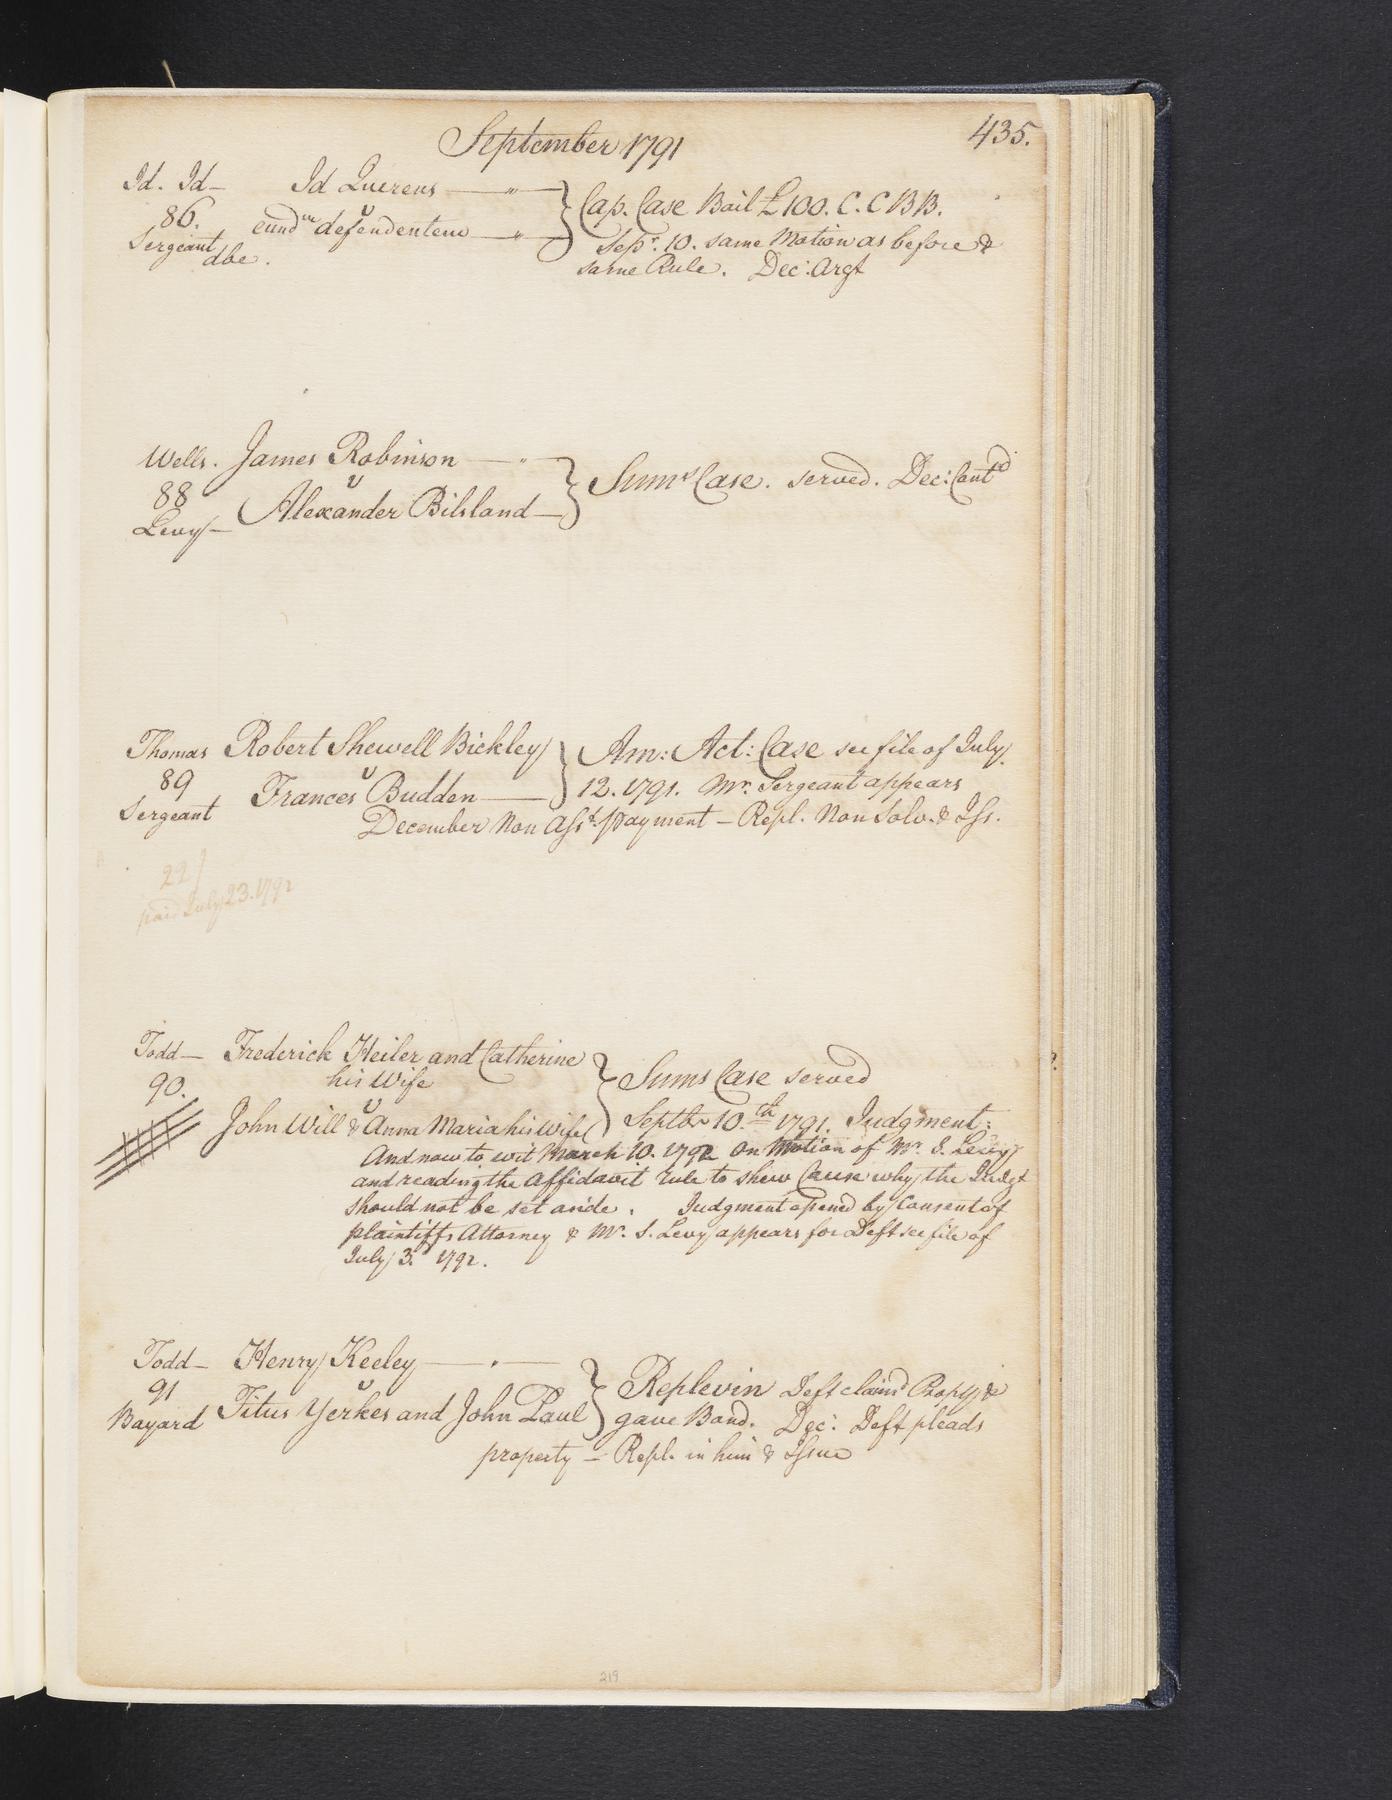 September 1791
435.
Id. Id— Id Querens —"— } Cap. Case Bail £100. C. C BB.
86. v
Sergeant eundm defendentem —"— Sepr. 10. same Motion as before &
dbe. same Rule. Dec: Argt
Wells. James Robinson —"— } Sums Case. served. Dec: Contd
88 v
Levy— Alexander Bilsland—
Thomas Robert Shewell Bickley } Am: Act: Case see file of July
89 v
Sergeant Frances Budden — 12. 1791. Mr. Sergeant appears
December Non Asst. payment — Repl. Non Solv. & Iss.
22/
paid July 23. 1792
Todd— Frederick Heiler and Catherine } Sums Case served
90. his Wife
v
John Will & Anna Maria his Wife Septbr 10.th 1791. Judgment:
And now to wit March 10. 1792 On Motion of Mr. S. Levy
and reading the Affidavit rule to shew Cause why the Judgt
should not be set aside. Judgment opened by Consent of
plaintiffs Attorney & Mr. S. Levy appears for Deft see file of
July 3. 1792.
Todd— Henry Keeley —"— } Replevin Deft claimd Propty &
91 v
Bayard Titus Yerkes and John Paul gave Bond. Dec: Deft pleads
property — Repl. in him & Issue
219